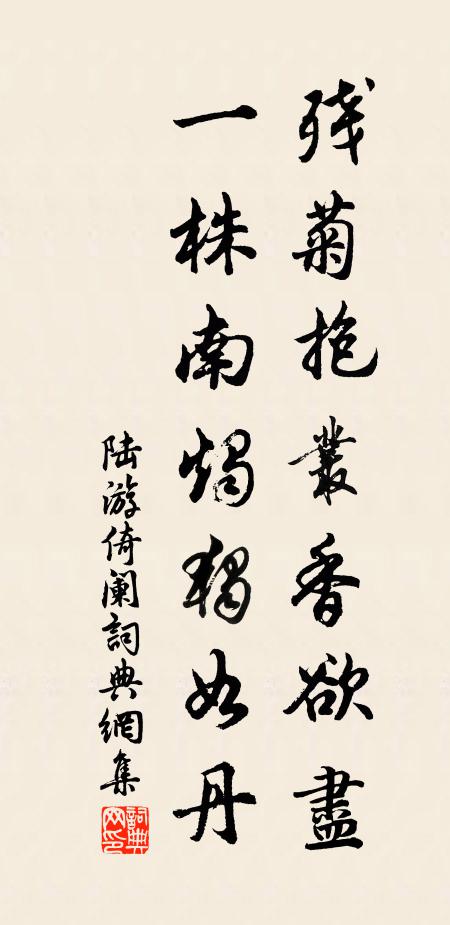 残菊抱叢香欲盡
一株南燭獨如丹
陆游倚阑詞典網集
詞典網印